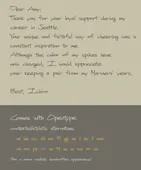 Dear Amy,
Thank you for your loyal support during my
career in Seattle.
Your unique and faithful way of cheering was a
constant inspiration to me.
Although the color of my spikes have
now changed, I would appreciate
your keeping a pair from my Mariners' years.
Best, Ichiro
Comes with Opentype
contextual/stylistic alternatives
for a more realistic handwritten appearance!